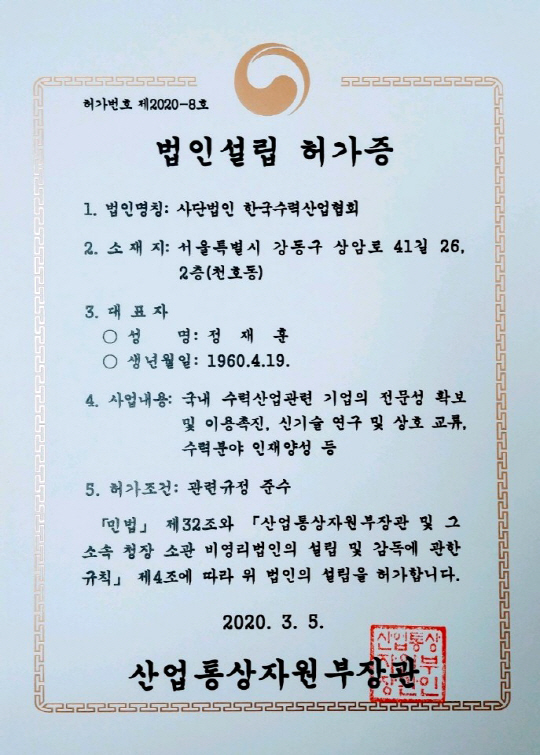 허가번호 제2020-8호
법인설립 허가증
1. 법인명칭: 사단법인 한국수력산업협회
2. 소 재 지: 서울특별시 강동구 상암로 41길 26,
2층(천호동)
3. 대 표 자
○ 성 명: 정 재 훈
○ 생년월일: 1960.4.19.
4. 사업내용: 국내 수력산업관련 기업의 전문성 확보
및 이용촉진, 신기술 연구 및 상호 교류,
수력분야 인재양성 등
5. 허가조건: 관련규정 준수
「민법」 제32조와 「산업통상자원부장관 및 그
소속 청장 소관 비영리법인의 설립 및 감독에 관한
규칙」 제4조에 따라 위 법인의 설립을 허가합니다.
2020. 3. 5.
산업통상자원부장관
산업통상
자원부
장관인